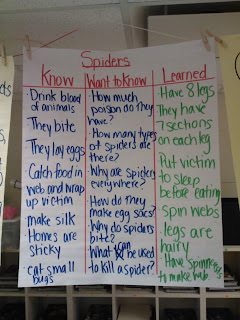 Spiders
Know
Drink blood
of animals
They bite
They lay eggs
Catch food in
web and wrap
up victim
make silk
Homes are
sticky
eat small
bugs
Want to Know
How much
poison do they
have?
How many types
of spiders are
there?
Why are spiders
everywhere?
How do they
make egg sacs?
Why do spiders
bite?
What can be used
to kill a spider?
Learned
Have 8 legs
They have
7 sections
on each leg
Put victim
to sleep
before eating
spin webs
legs are
hairy
Have Spinnerets
to make web